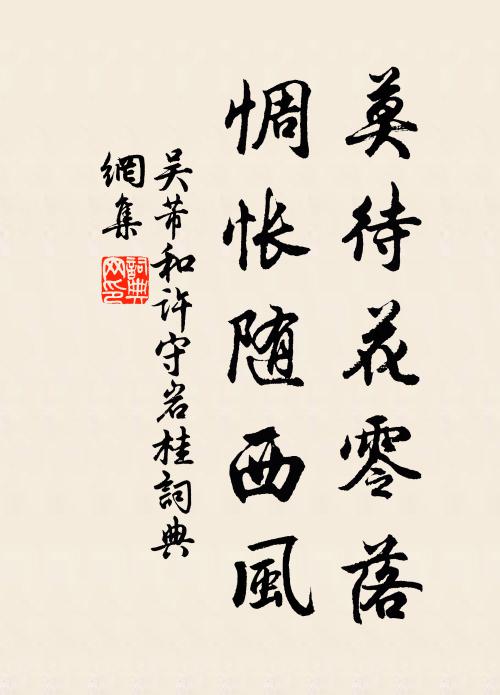 莫待花零落
惆怅随西風
吴芾和许守岩桂詞典
網集
詞典網印